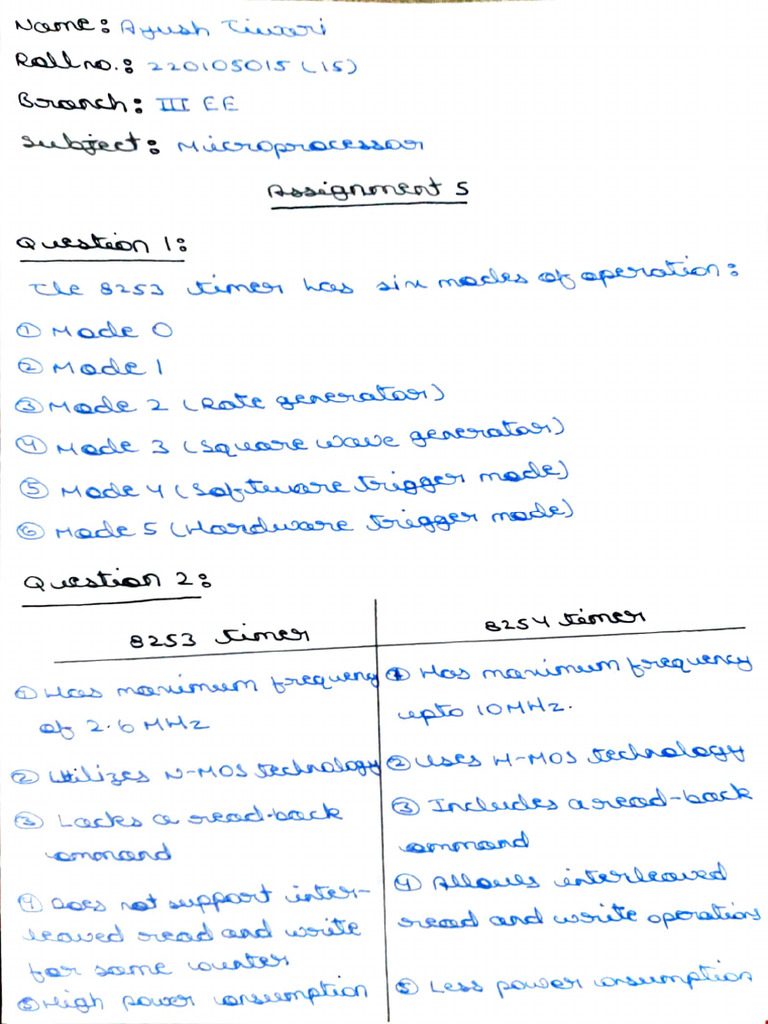 Name: Ayush Tiwari
Roll no.: 220105015 (15)
Branch: III EE
Subject: Microprocessor
Assignment 5
Question 1:
The 8253 timer has six modes of operation:
① Mode 0
② Mode 1
③ Mode 2 (Rate generator)
④ Mode 3 (Square wave generator)
⑤ Mode 4 (Software trigger mode)
⑥ Mode 5 (Hardware trigger mode)
Question 2:
8253 timer
① Has maximum frequency
of 2.6 MHz
② Utilizes N-MOS technology
③ Lacks a read-back
command
④ Does not support inter-
leaved read and write
for same counter
⑤ High power consumption
8254 timer
① Has maximum frequency
upto 10MHz.
② Uses H-MOS technology
③ Includes a read-back
command
④ Allows interleaved
read and write operations
⑤ Less power consumption